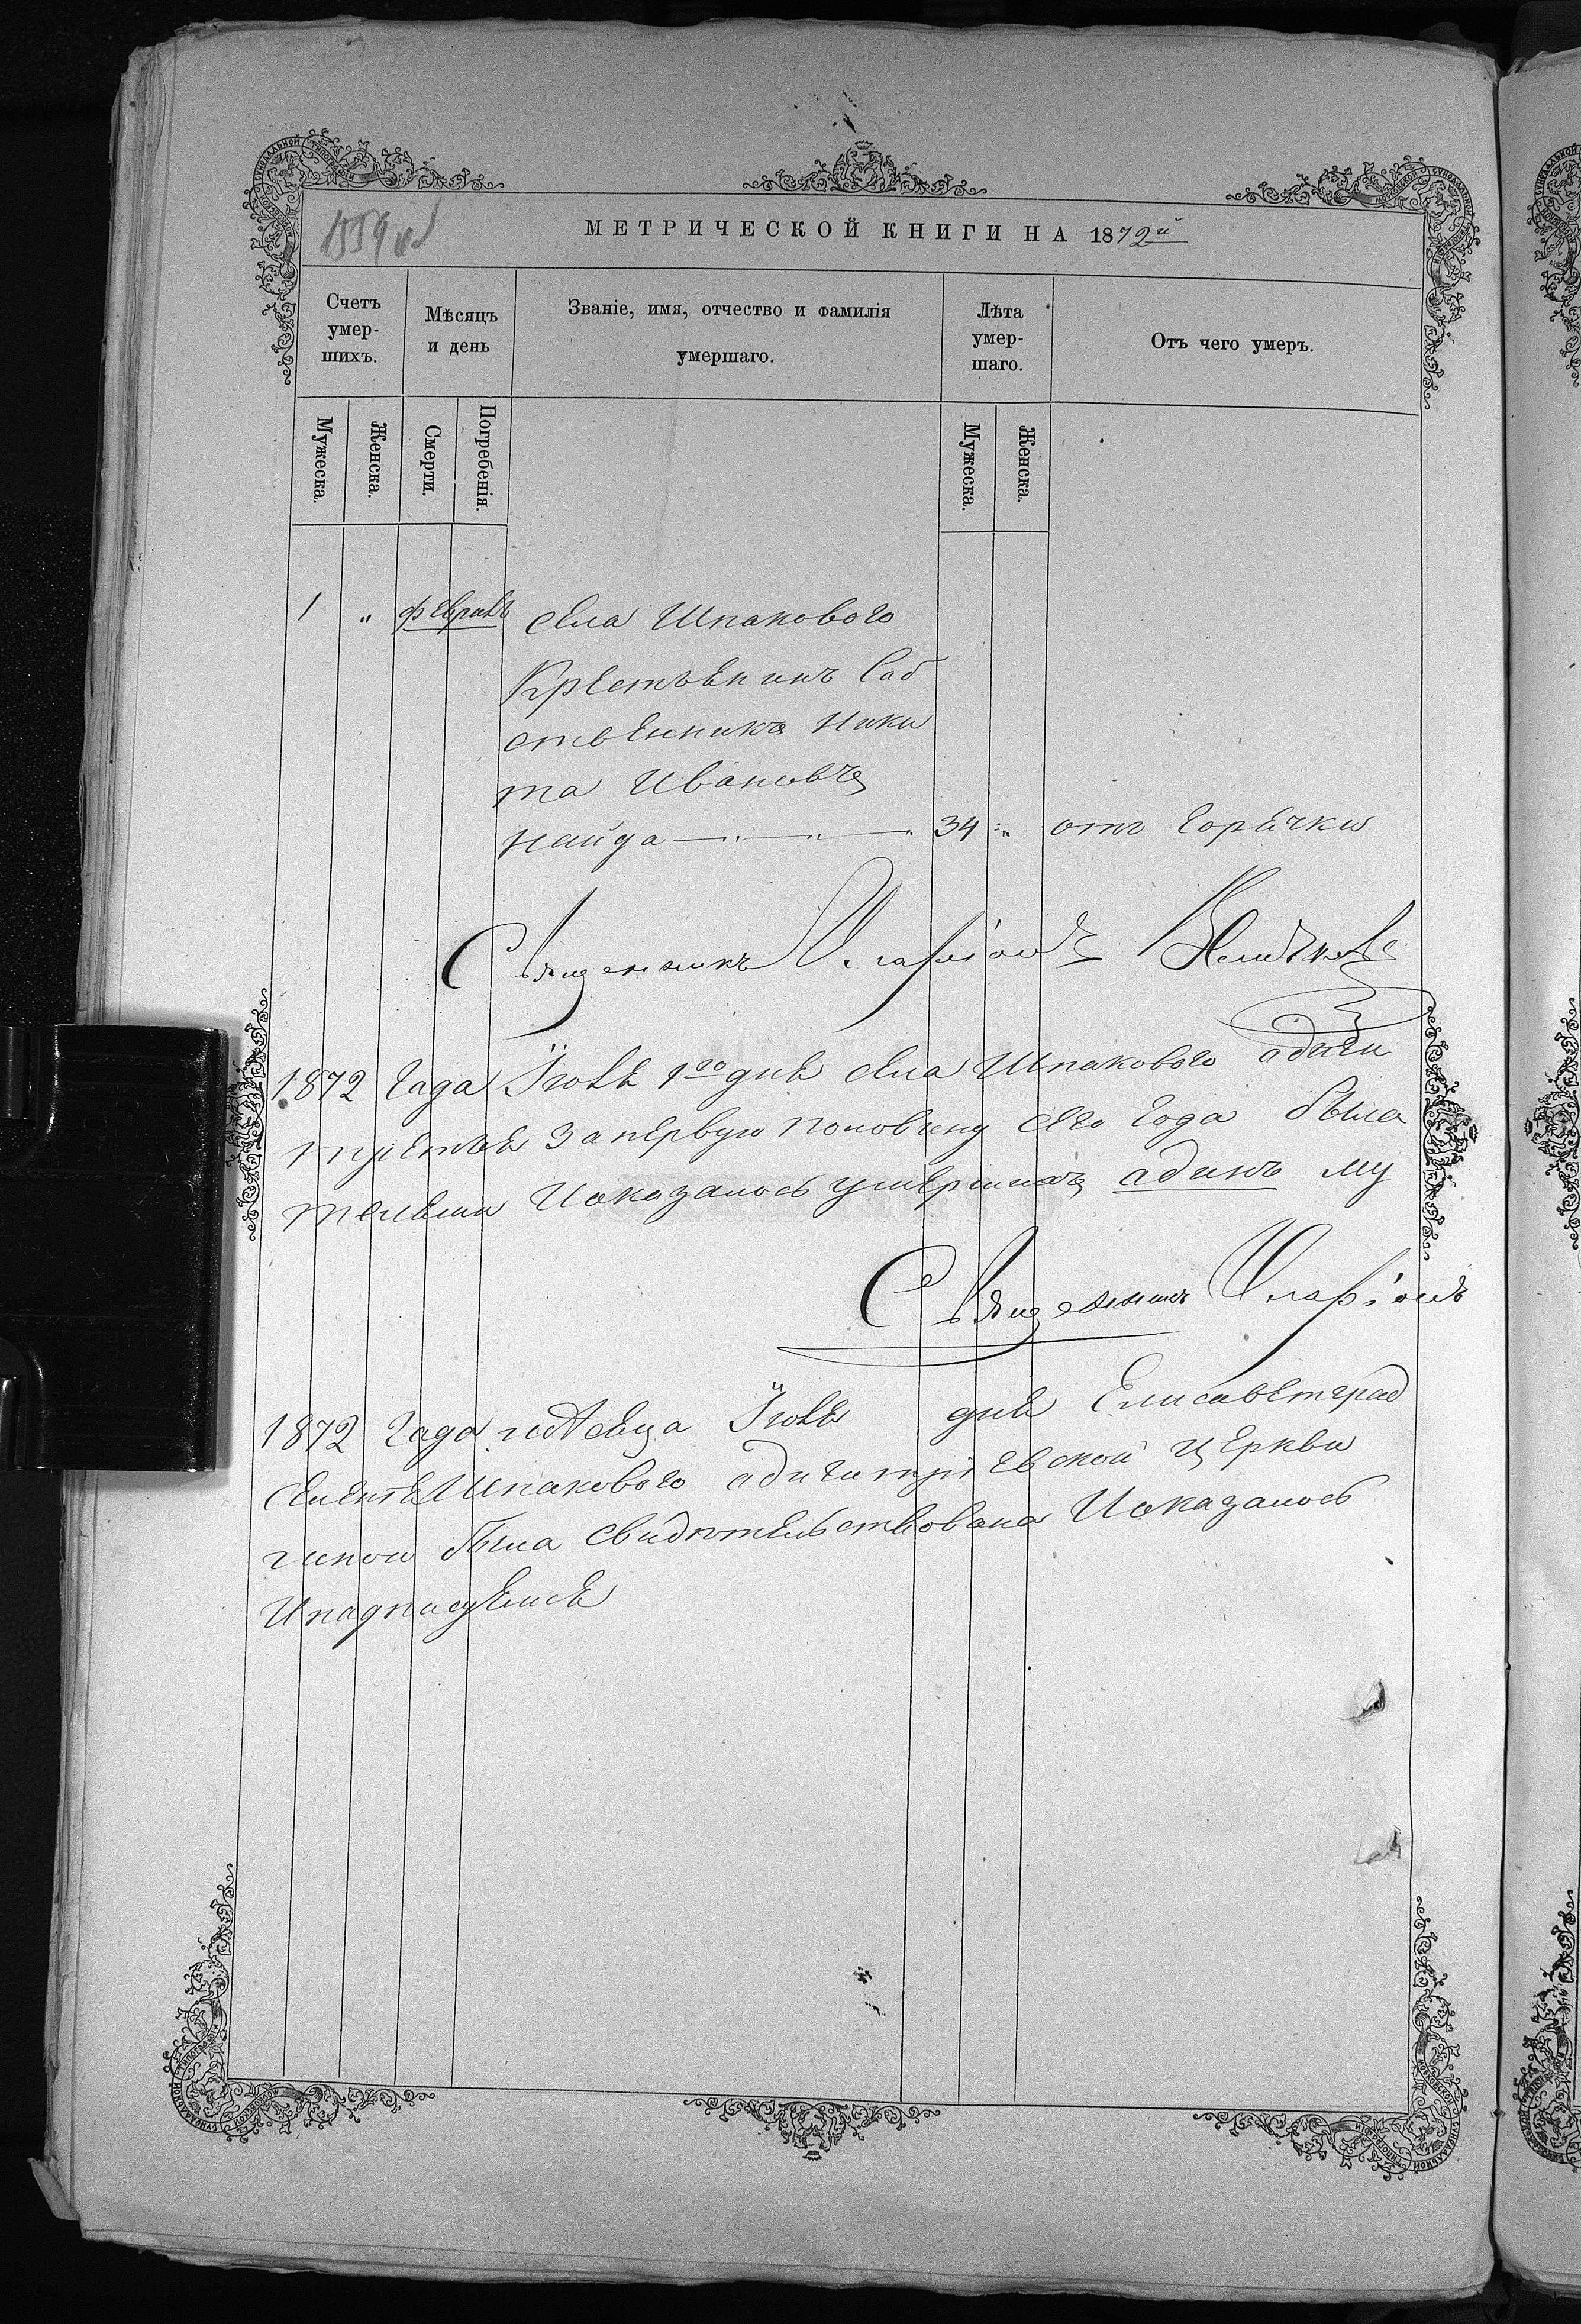 МЕТРИЧЕСКОЙ КНИГИ НА 1872й
Счетъ умер-шихъ.
Мѣсяцъ и день
Званіе, имя, отчество и фамилія умершаго.
Лѣта умер-шаго.
Отъ чего умеръ.
Мужеска.
Женска.
Смерти.
Погребенія.
Мужеска.
Женска.
1 " февраль села Шпакового
Крестьенинъ Саб
ственникъ Ники
та Ивановъ
Найда 34 " отъ горячки
Священникъ Иларіонъ
1872 Года Іюля 1го дня села Шпакового адиги
тріетъя За первую половину сего года была
Иаказалось умершихъ адинъ му
Священникъ Иларіонъ
1872 Года месяца Іюля дня Елисаветград
Шпакового адигитріевской церкви
была свидѣтельствована Иаказалось